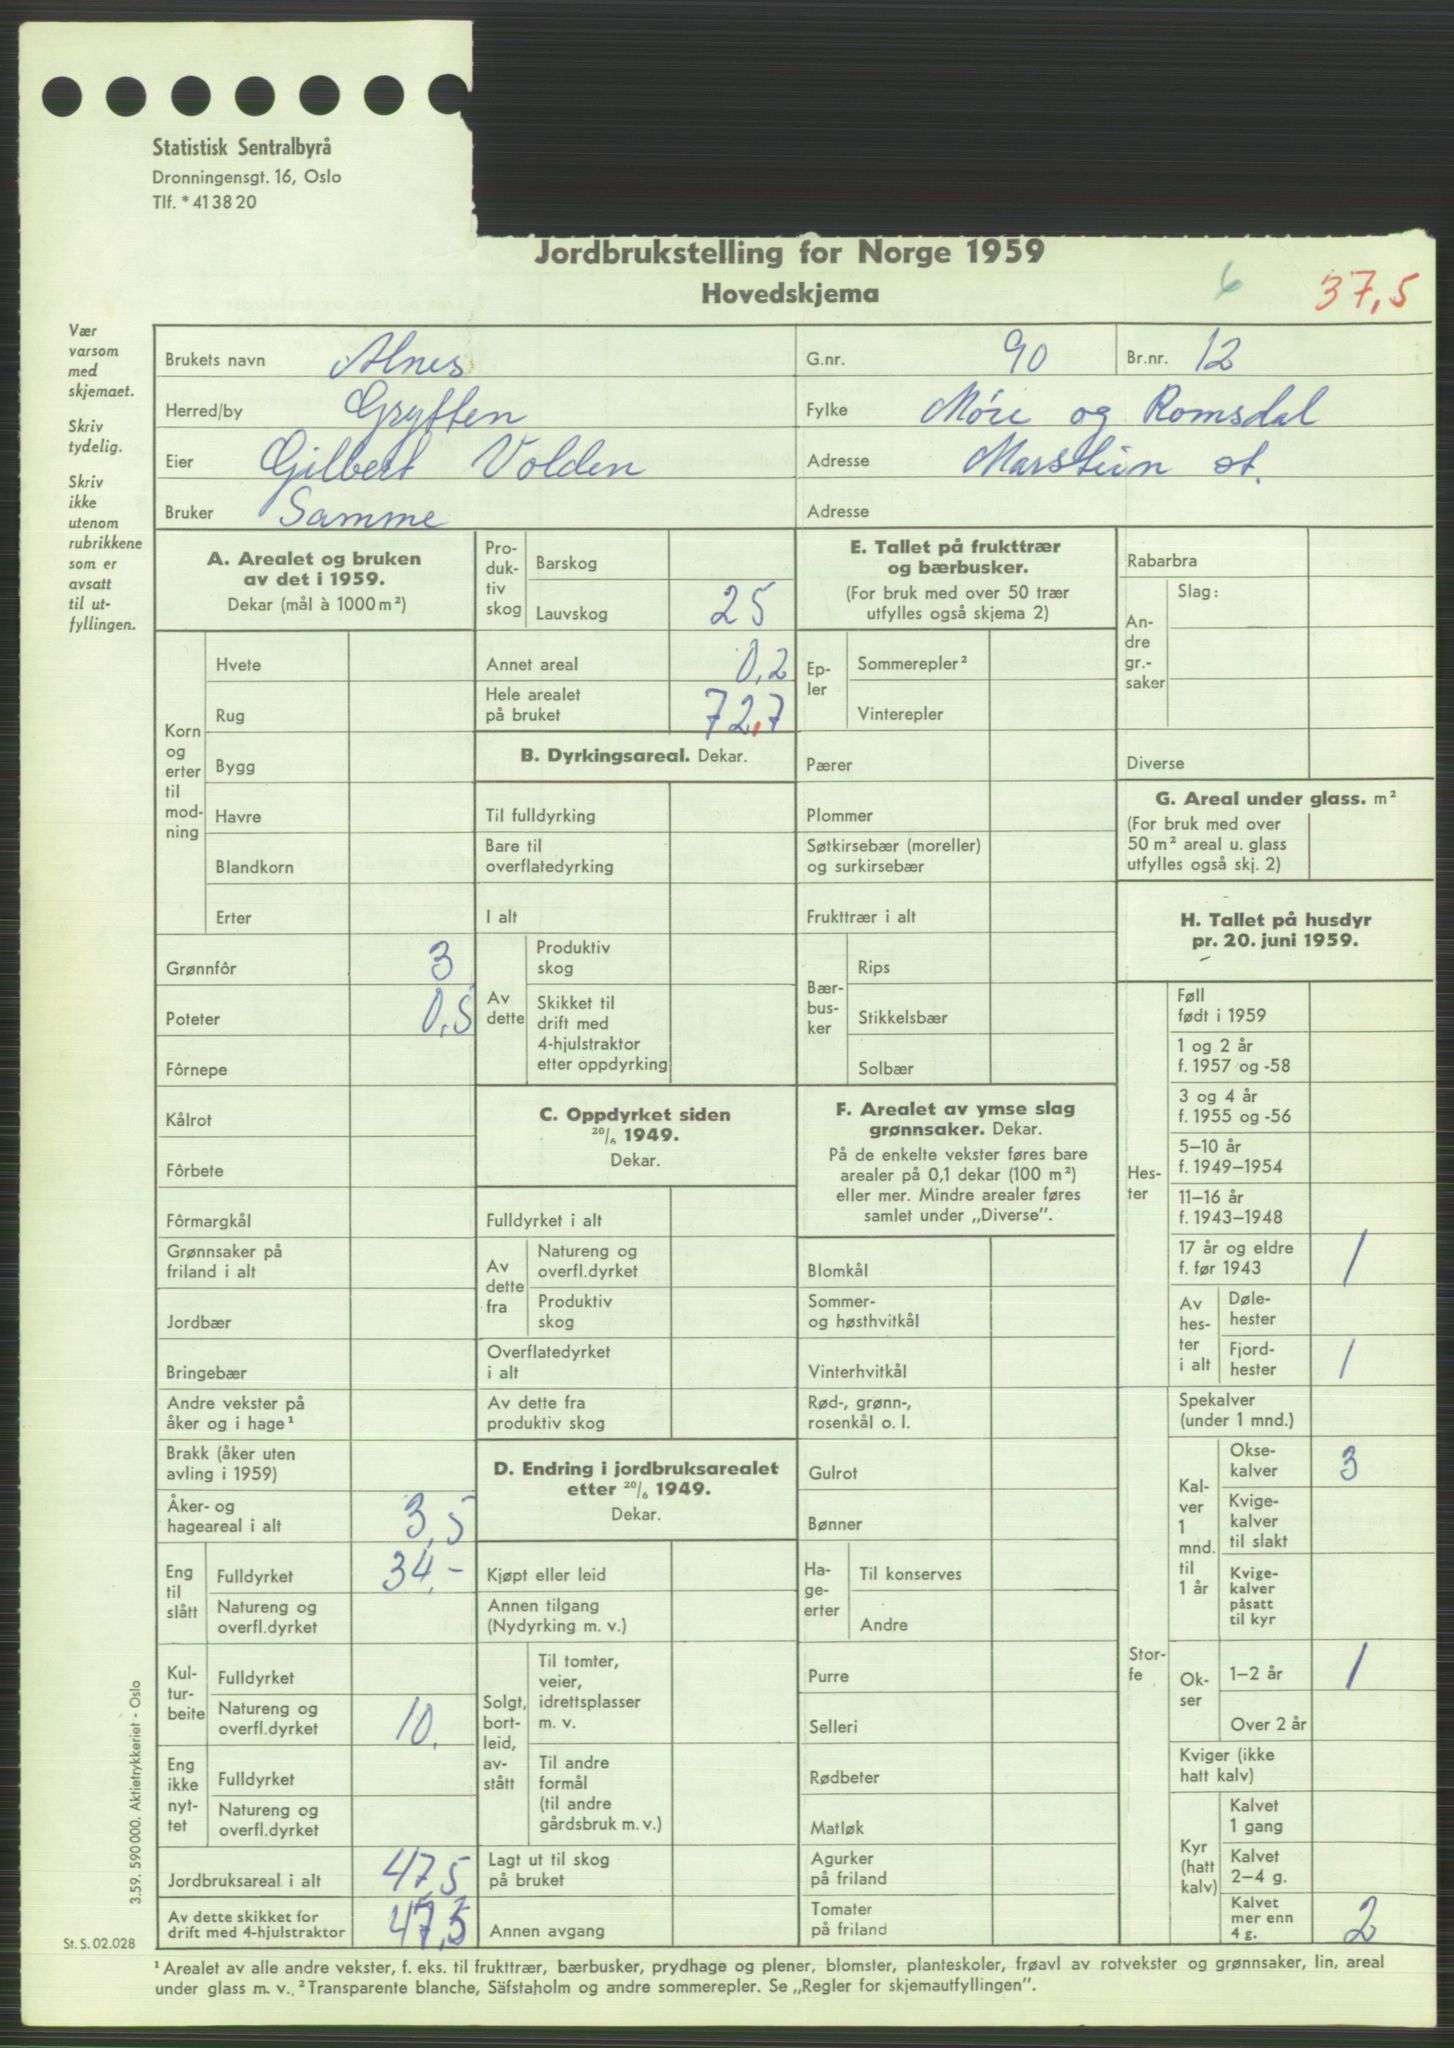 Statistisk Sentralbyrå
Dronningensgt. 16, Oslo
Tlf. * 41 38 20
Jordbrukstelling for Norge 1959
Hovedskjema
6 37,5
Vær
varsom
med
skjemaet.
Skriv
tydelig.
Skriv
ikke
utenom
rubrikkene
som er
avsatt
til ut-
fyllingen.
Brukets navn Alnes G.nr. 90 Br.nr. 12
Herred/by Grytten Fylke Møre og Romsdal
Eier Gilbert Volden Adresse Marstein st.
Bruker Samme Adresse
A. Arealet og bruken
av det i 1959.
Dekar (mål à 1000 m²)
Korn
og
erter
til
mod-
ning
Hvete
Rug
Bygg
Havre
Blandkorn
Erter
Grønnfôr 3
Poteter 0,5
Fôrnepe
Kålrot
Fôrbete
Fôrmargkål
Grønnsaker på
friland i alt
Jordbær
Bringebær
Andre vekster på
åker og i hage¹
Brakk (åker uten
avling i 1959)
Åker- og
hageareal i alt 3,5
Eng
til
slått
Fulldyrket 34,-
Natureng og
overfl.dyrket
Kul-
tur-
beite
Fulldyrket
Natureng og
overfl.dyrket 10,
Eng
ikke
nyt-
tet
Fulldyrket
Natureng og
overfl.dyrket
Jordbruksareal i alt 47,5
Av dette skikket for
drift med 4-hjulstraktor 47,5
Pro-
duk-
tiv
skog
Barskog
Lauvskog 25
Annet areal 0,2
Hele arealet
på bruket 72,7
B. Dyrkingsareal. Dekar.
Til fulldyrking
Bare til
overflatedyrking
I alt
Av
dette
Produktiv
skog
Skikket til
drift med
4-hjulstraktor
etter oppdyrking
C. Oppdyrket siden
20/6 1949.
Dekar.
Fulldyrket i alt
Av
dette
fra
Natureng og
overfl.dyrket
Produktiv
skog
Overflatedyrket
i alt
Av dette fra
produktiv skog
D. Endring i jordbruksarealet
etter 20/6 1949.
Dekar.
Kjøpt eller leid
Annen tilgang
(Nydyrking m. v.)
Solgt,
bort-
leid,
av-
stått
Til tomter,
veier,
idrettsplasser
m. v.
Til andre
formål
(til andre
gårdsbruk m. v.)
Lagt ut til skog
på bruket
Annen avgang
E. Tallet på frukttrær
og bærbusker.
(For bruk med over 50 trær
utfylles også skjema 2)
Ep-
ler
Sommerepler²
Vinterepler
Pærer
Plommer
Søtkirsebær (moreller)
og surkirsebær
Frukttrær i alt
Bær-
bus-
ker
Rips
Stikkelsbær
Solbær
F. Arealet av ymse slag
grønnsaker. Dekar.
På de enkelte vekster føres bare
arealer på 0,1 dekar (100 m²)
eller mer. Mindre arealer føres
samlet under „Diverse".
Blomkål
Sommer-
og høsthvitkål
Vinterhvitkål
Rød-, grønn-,
rosenkål o. l.
Gulrot
Bønner
Ha-
ge-
erter
Til konserves
Andre
Purre
Selleri
Rødbeter
Matløk
Agurker
på friland
Tomater
på friland
Rabarbra
An-
dre
gr.-
saker
Slag:
Diverse
G. Areal under glass. m²
(For bruk med over
50 m² areal u. glass
utfylles også skj. 2)
H. Tallet på husdyr
pr. 20. juni 1959.
Hes-
ter
Føll
født i 1959
1 og 2 år
f. 1957 og -58
3 og 4 år
f. 1955 og -56
5–10 år
f. 1949–1954
11–16 år
f. 1943–1948
17 år og eldre
f. før 1943 1
Av
hes-
ter
i alt
Døle-
hester
Fjord-
hester 1
Stor-
fe
Spekalver
(under 1 mnd.)
Kal-
ver
1
mnd.
til
1 år
Okse-
kalver 3
Kvige-
kalver
til slakt
Kvige-
kalver
påsatt
til kyr
Ok-
ser
1–2 år 1
Over 2 år
Kviger (ikke
hatt kalv)
Kyr
(hatt
kalv)
Kalvet
1 gang
Kalvet
2–4 g.
Kalvet
mer enn
4 g. 2
3.59. 590 000. Aktietrykkeriet - Oslo
St. S. 02.028
¹ Arealet av alle andre vekster, f. eks. til frukttrær, bærbusker, prydhage og plener, blomster, planteskoler, frøavl av rotvekster og grønnsaker, lin, areal
under glass m. v. ² Transparente blanche, Säfstaholm og andre sommerepler. Se „Regler for skjemautfyllingen".